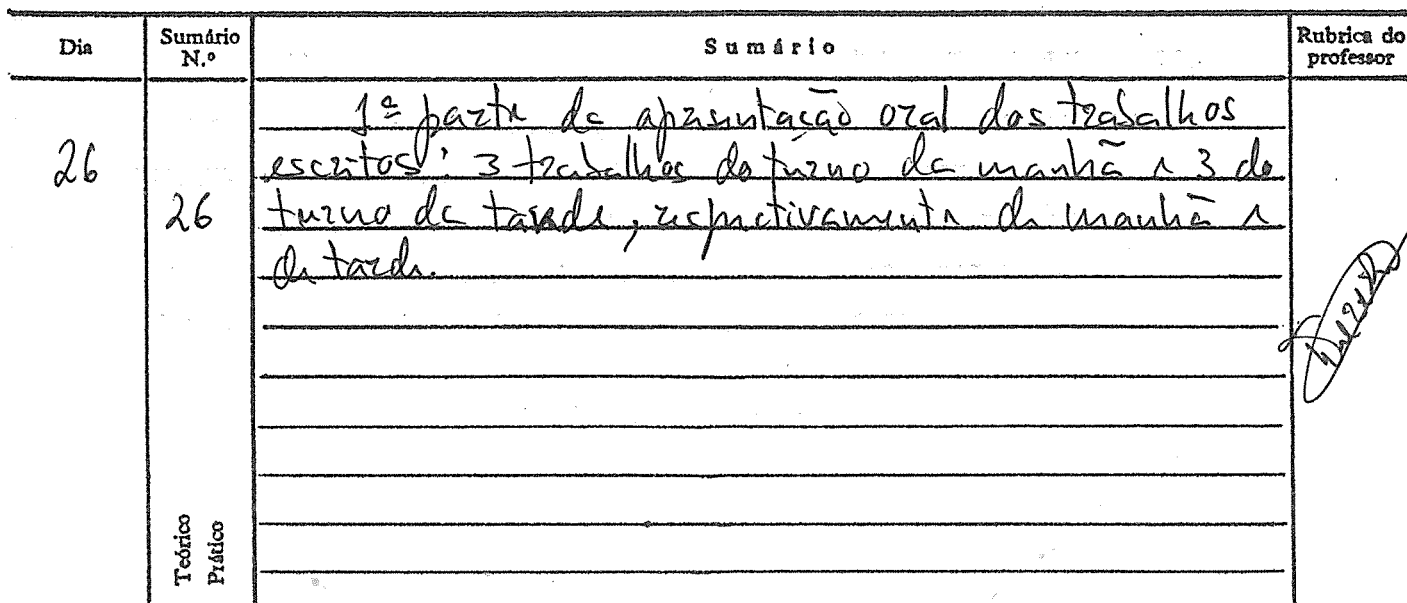 Dia
Sumário N.º
Sumário
Rubrica do professor
26
26
1ª parte da apresentação oral dos trabalhos
escritos: 3 trabalhos do turno da manhã e 3 do
turno da tarde, respectivamente de manhã e
de tarde.
Teórico
Prático